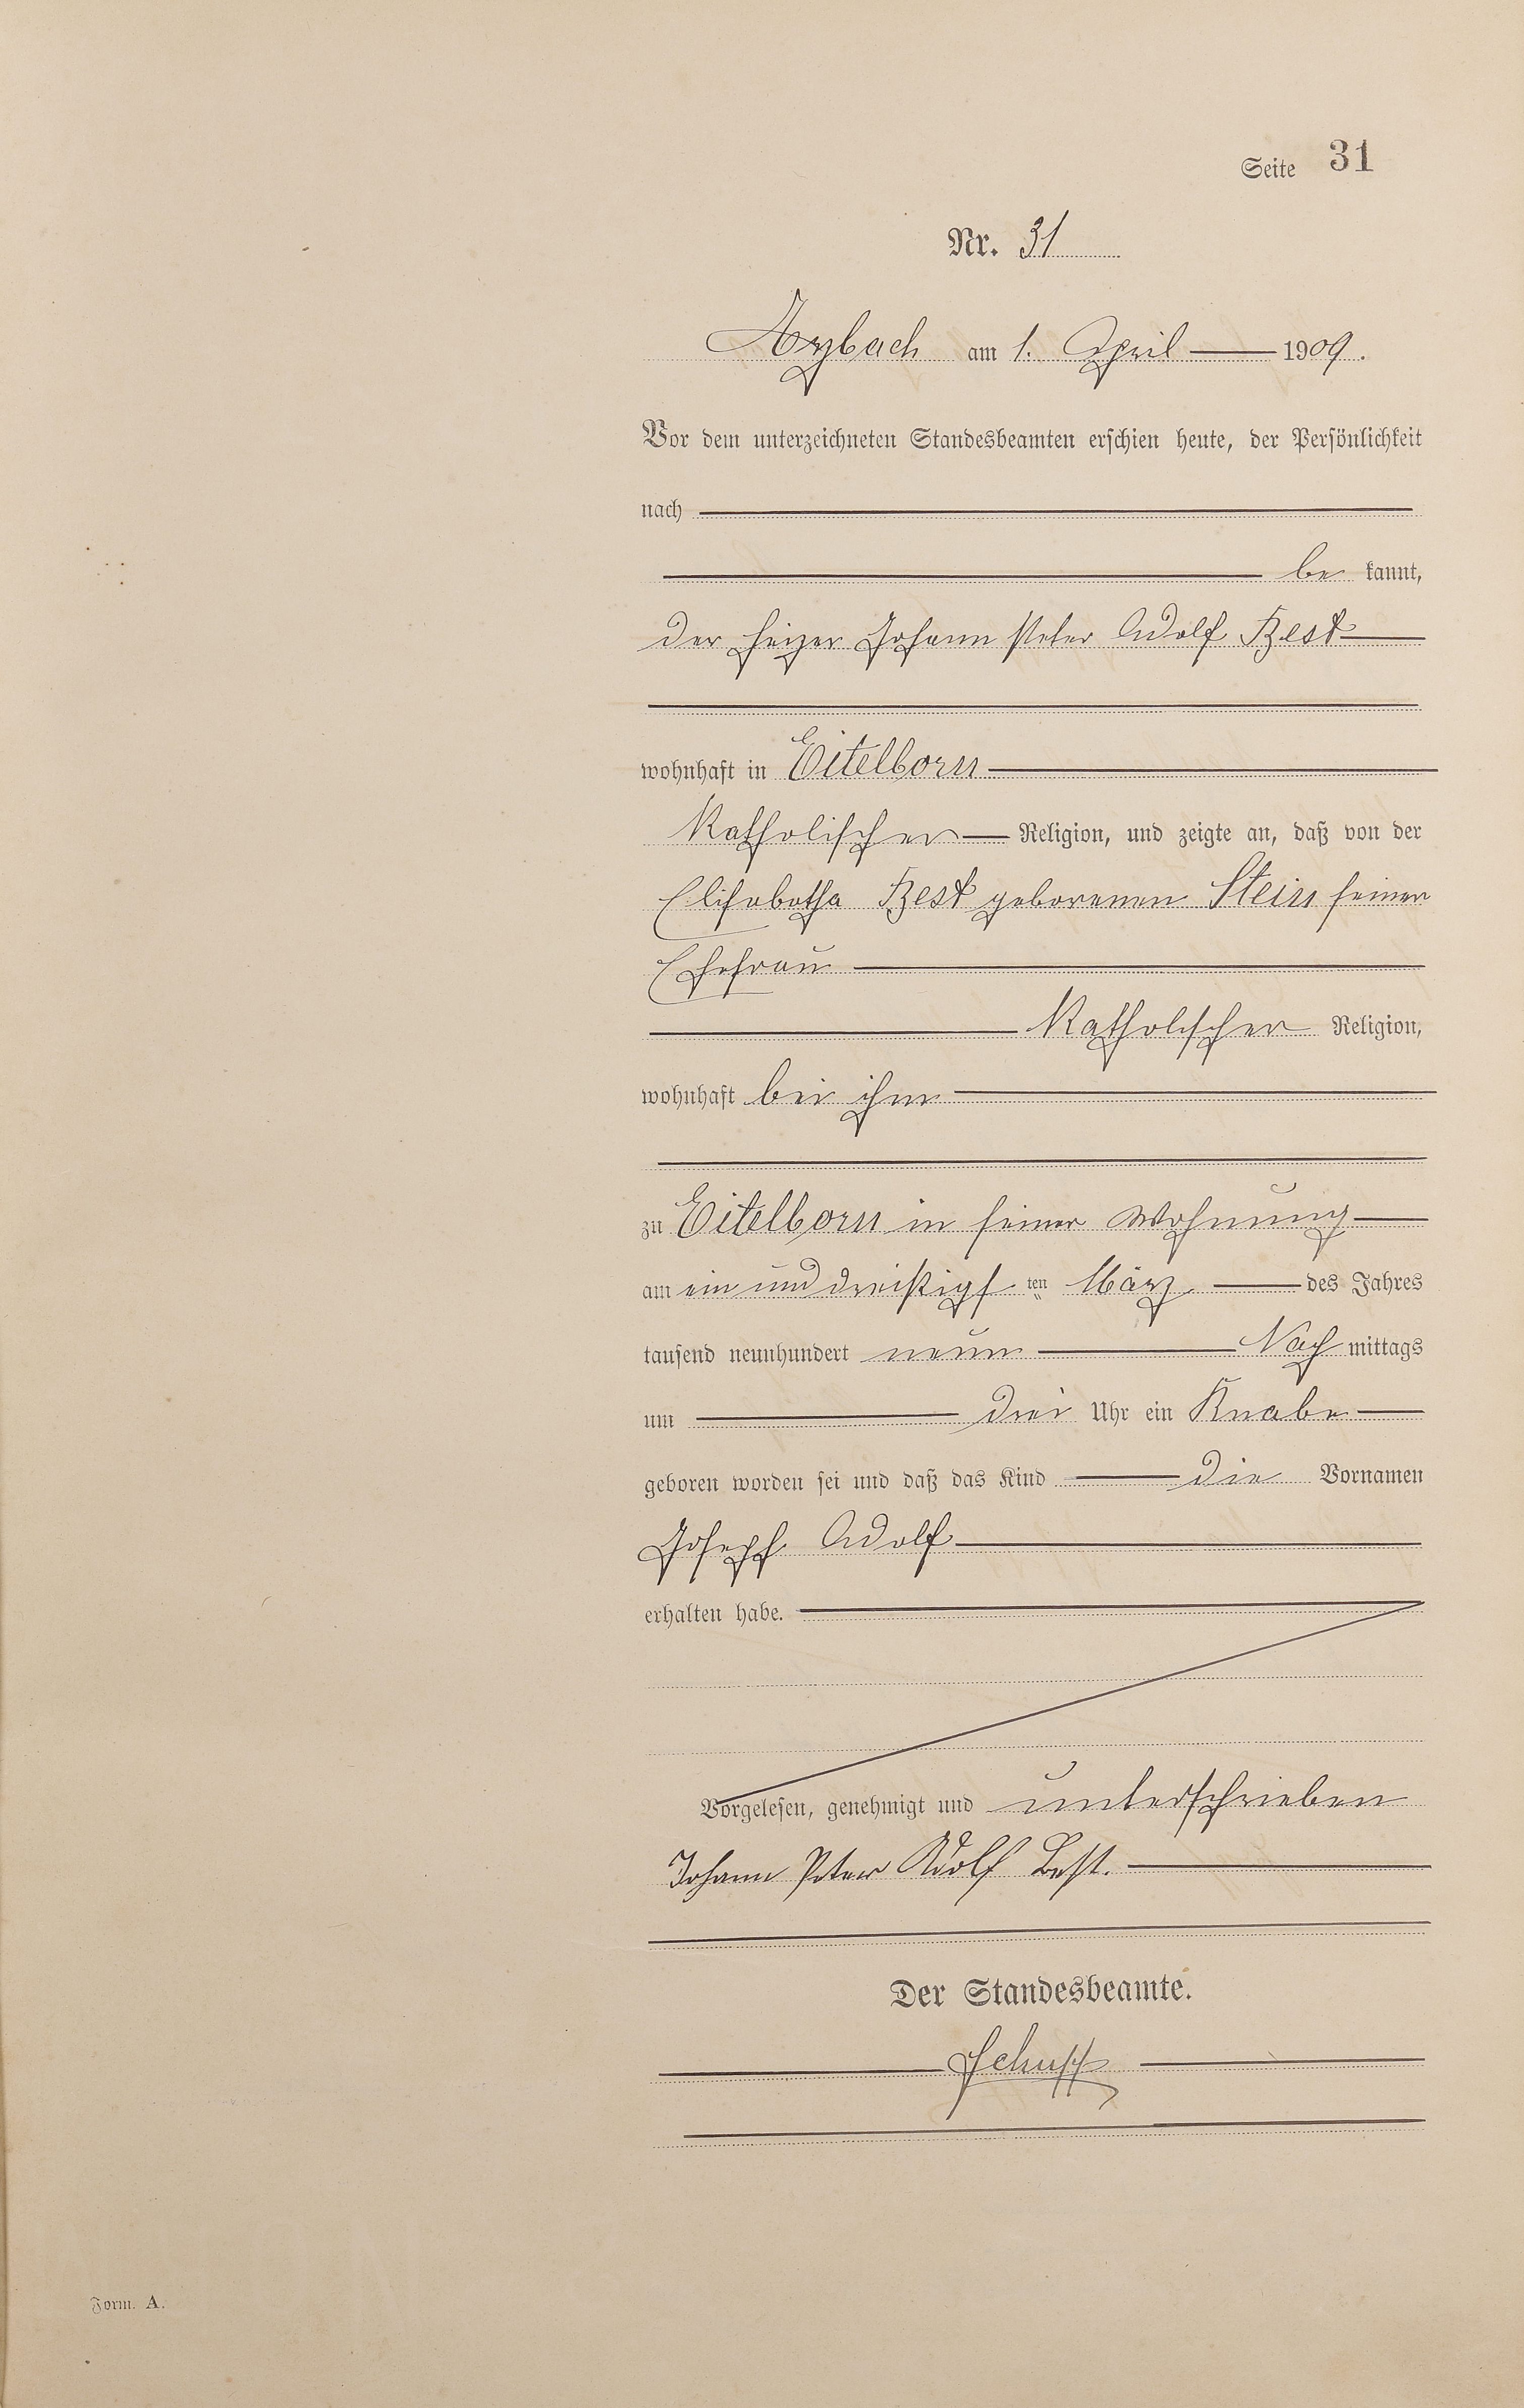 Seite 31
Nr. 31
Arzbach am 1. April 1909.
Vor dem unterzeichneten Standesbeamten erschien heute, der Persönlichkeit
nach
be kannt,
der Heizer Johann Peter Adolf Best
wohnhaft in Eitelborn
Katholischer Religion, und zeigte an, daß von der
Elisabetha Best geborenen Stein seiner
Ehefrau
Katholischer Religion,
wohnhaft bei ihm
zu Eitelborn in seiner Wohnung
am ein und dreißigs ten März des Jahres
tausend neunhundert neun Nach mittags
um drei Uhr ein Knabe
geboren worden sei und daß das Kind die Vornamen
Joseph Adolf
erhalten habe.
Vorgelesen, genehmigt und unterschrieben
Johann Peter Adolf Best.
Der Standesbeamte.
Schupp
Form. A.